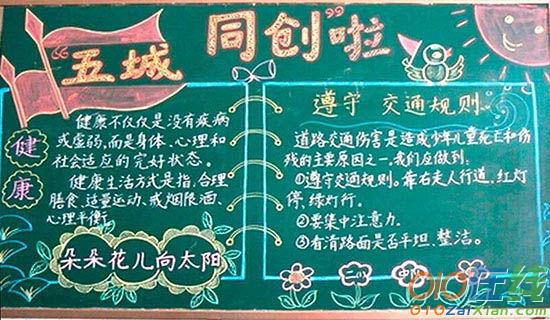 “五城同创”啦
健康
健康不仅仅是没有疾病
或虚弱,而是身体、心理和
社会适应的完好状态。
健康生活方式是指,合理
膳食、适量运动、戒烟限酒、
心理平衡。
朵朵花儿向太阳
遵守 交通规则。
道路交通伤害是造成少年儿童死亡和伤
残的主要原因之一。我们应做到:
①遵守交通规则。靠右走人行道,红灯
停,绿灯行。
②要集中注意力。
③看清路面是否平坦、整洁。
二(
010在线
010zaixian.com